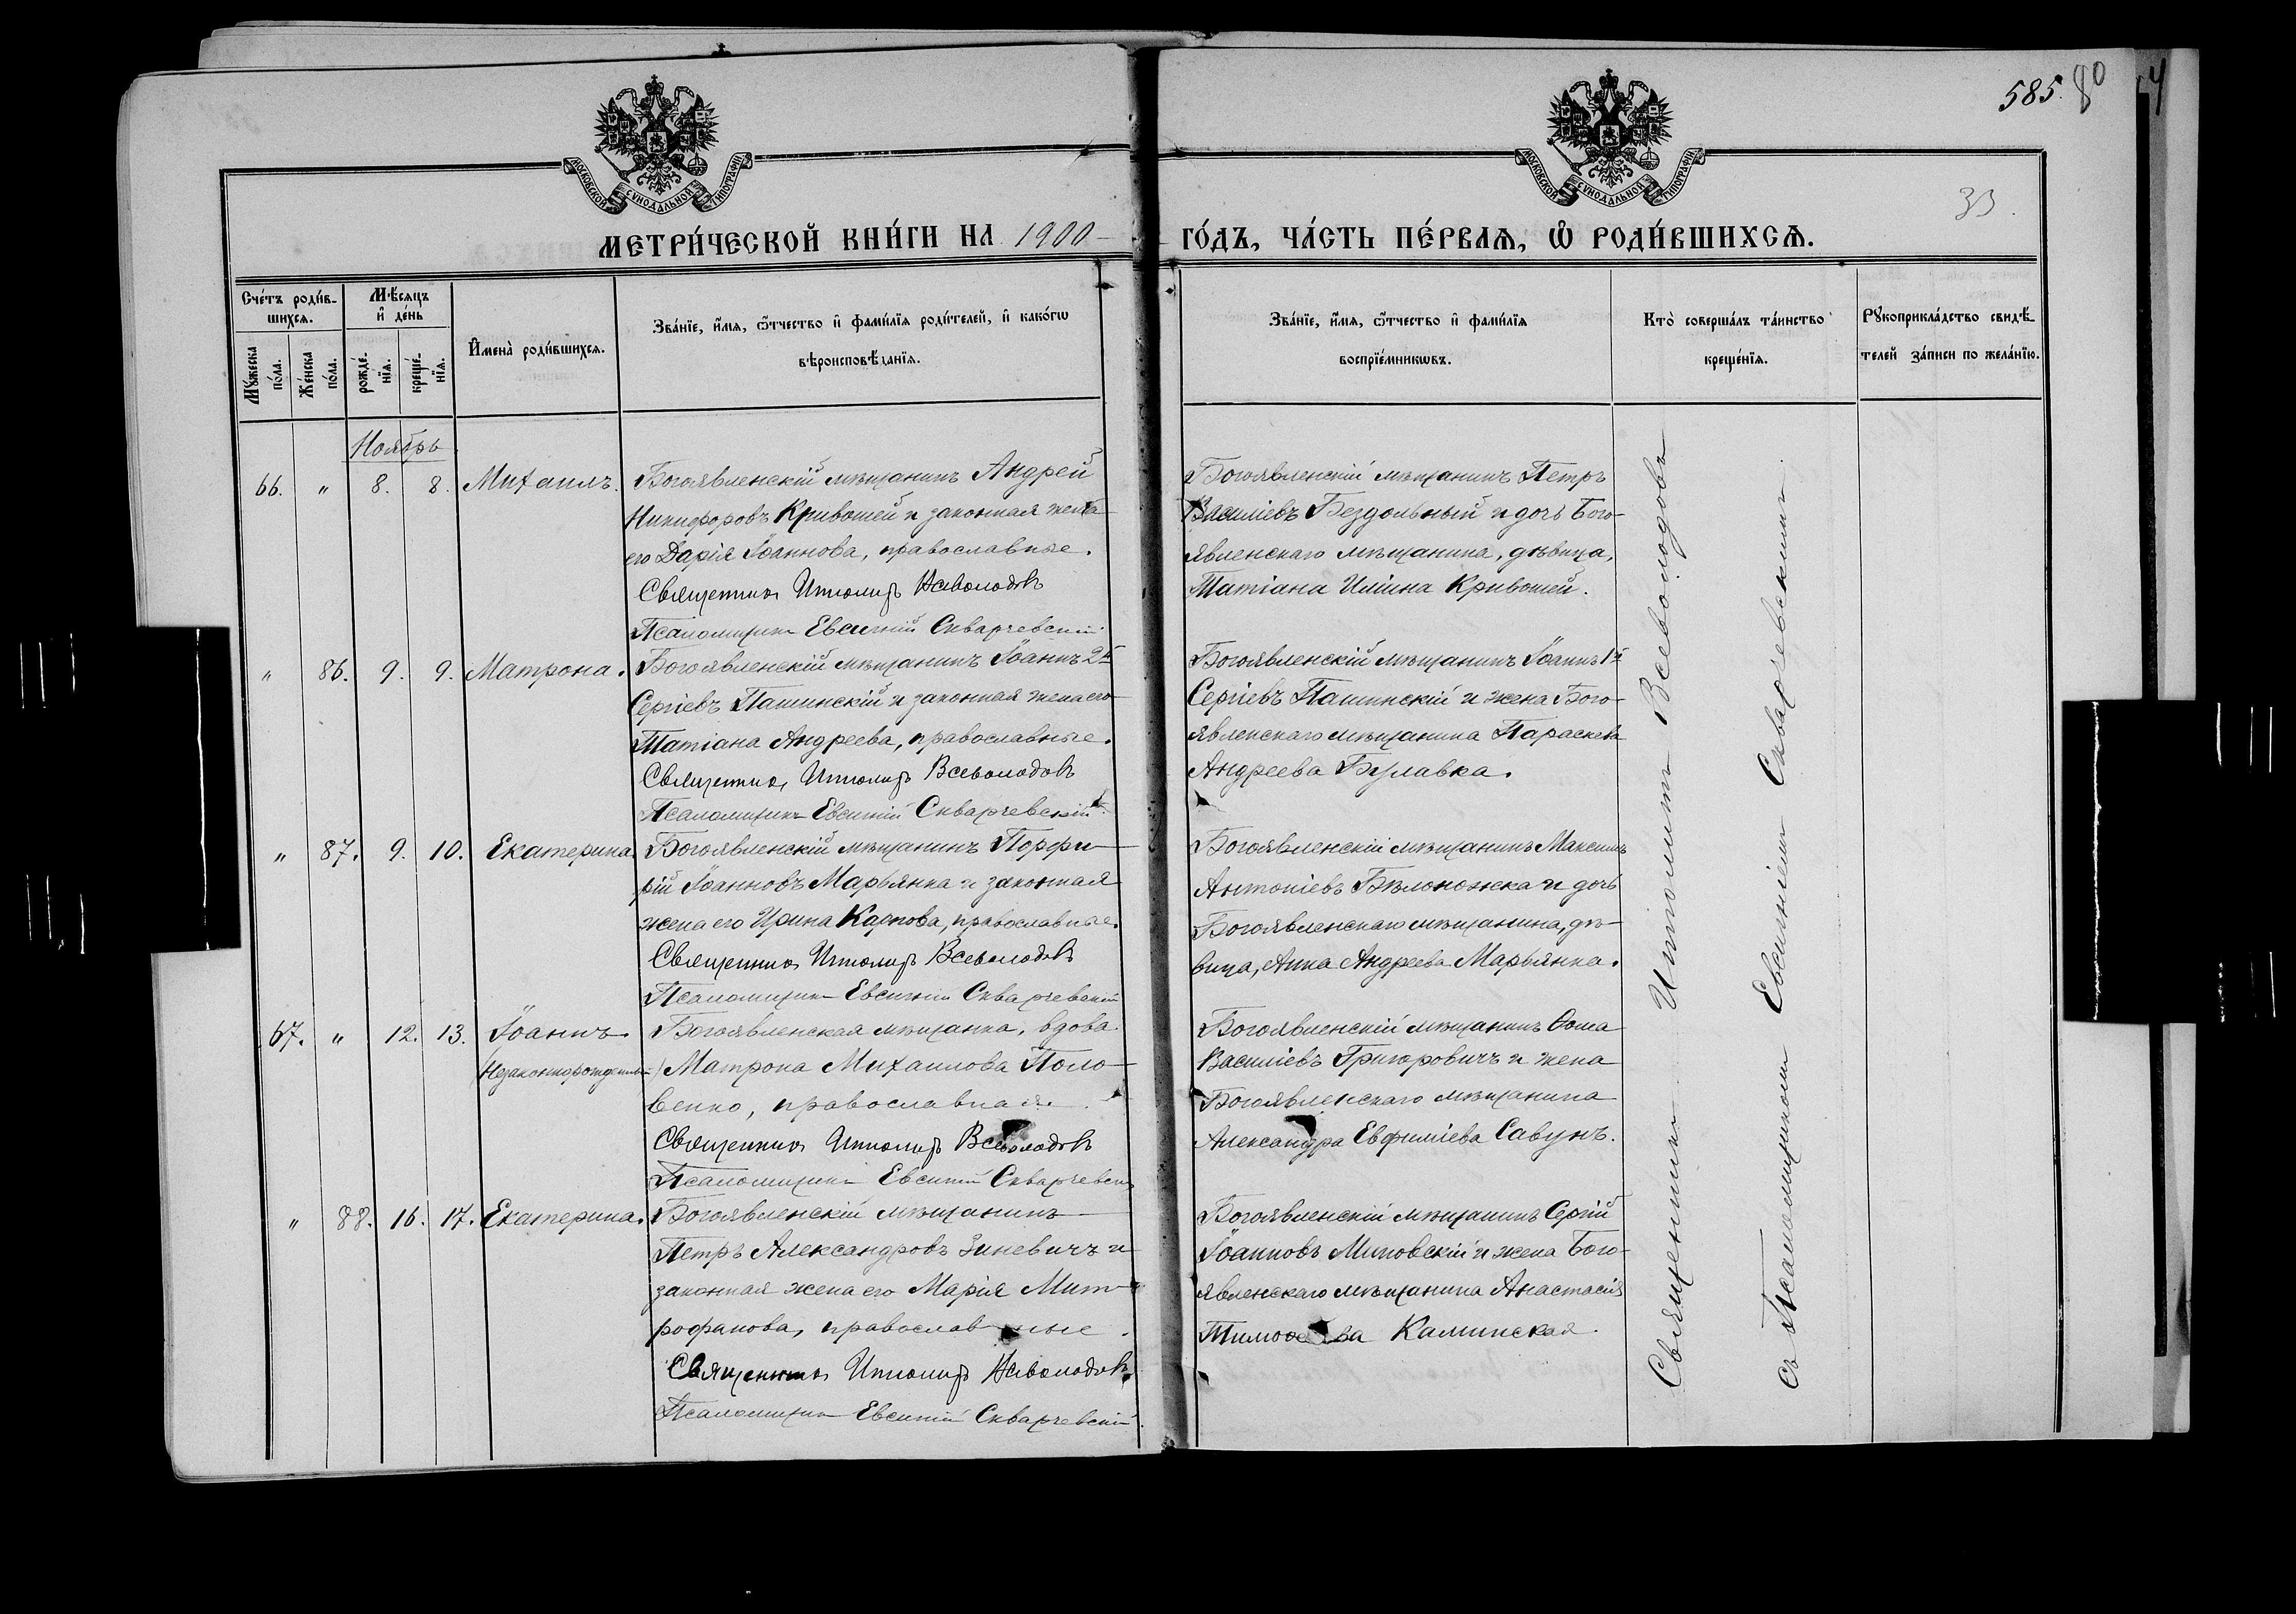 585. 80
4
33.
МОСКОВСКОЙ СѴНОДАЛЬНОЙ ТИПОГРАФІИ
МОСКОВСКОЙ СѴНОДАЛЬНОЙ ТИПОГРАФІИ
МЕТРИ́ЧЕСКОЙ КНИ́ГИ НА 1900 ГО́ДЪ, ЧА́СТЬ ПЕ́РВАѦ, Ѡ҆ РОДИ́ВШИХСѦ.
Сче́тъ роди́в-
шихсѧ.
Мѣ́сѧцъ
и҆ де́нь
Мꙋ́жеска
по́ла.
Же́нска
по́ла.
рожде́-
нїѧ.
креще́-
нїѧ.
И҆мена̀ роди́вшихсѧ.
Зва́нїе, и҆́мѧ, ѻ҆́тчество и҆ фами́лїѧ роди́телей, и҆ како́гѡ
вѣроисповѣ́данїѧ.
Зва́нїе, и҆́мѧ, ѻ҆́тчество и҆ фами́лїѧ
воспрїе́мникѡвъ.
Кто̀ соверша́лъ та́инство
креще́нїѧ.
Рꙋкоприкла́дство свидѣ́-
телей за́писи по жела́нїю.
Ноябрь
66. " 8. 8. Михаилъ.
Богоявленскій мѣщанинъ Андрей
Никифоровъ Кривошей и законная жена
его Дарія Іоаннова, православные.
Священникъ Ипполитъ Всеволодовъ
Псаломщикъ Евсигній Скварчевскій
Богоявленскій мѣщанинъ Петръ
Василіевъ Бездольный и дочь Бого-
явленскаго мѣщанина, дѣвица,
Татіана Иліина Кривошей.
" 86. 9. 9. Матрона.
Богоявленскій мѣщанинъ Іоаннъ 2й
Сергіевъ Пашинскій и законная жена его
Татіана Андреева, православные.
Священникъ Ипполитъ Всеволодовъ
Псаломщикъ Евсигній Скварчевскій
Богоявленскій мѣщанинъ Іоаннъ 1й
Сергіевъ Пашинскій и жена Бого-
явленскаго мѣщанина Параскева
Андреева Булавка.
" 87. 9. 10. Екатерина.
Богоявленскій мѣщанинъ Порфи-
рій Іоанновъ Марьянка и законная
жена его Ирина Карпова, православные.
Священникъ Ипполитъ Всеволодовъ
Псаломщикъ Евсигній Скварчевскій
Богоявленскій мѣщанинъ Максимъ
Антоніевъ Бѣлоножка и дочь
Богоявленскаго мѣщанина, дѣ-
вица, Анна Андреева Марьянка.
67. " 12. 13. Іоаннъ
(Незаконнорожденный)
Богоявленская мѣщанка, вдова
Матрона Михаилова Поло-
венко, православная.
Священникъ Ипполитъ Всеволодовъ
Псаломщикъ Евсигній Скварчевскій
Богоявленскій мѣщанинъ Ѳома
Василіевъ Григоровичъ и жена
Богоявленскаго мѣщанина
Александра Евфиміева Савунъ.
" 88. 16. 17. Екатерина.
Богоявленскій мѣщанинъ
Петръ Александровъ Зиневичъ и
законная жена его Марія Мит-
рофанова, православные.
Священникъ Ипполитъ Всеволодовъ
Псаломщикъ Евсигній Скварчевскій
Богоявленскій мѣщанинъ Сергій
Іоанновъ Миповскій и жена Бого-
явленскаго мѣщанина Анастасія
Тимоѳеева Каминская.
Священникъ Ипполитъ Всеволодовъ
съ Псаломщикомъ Евсигніемъ Скварчевскимъ.